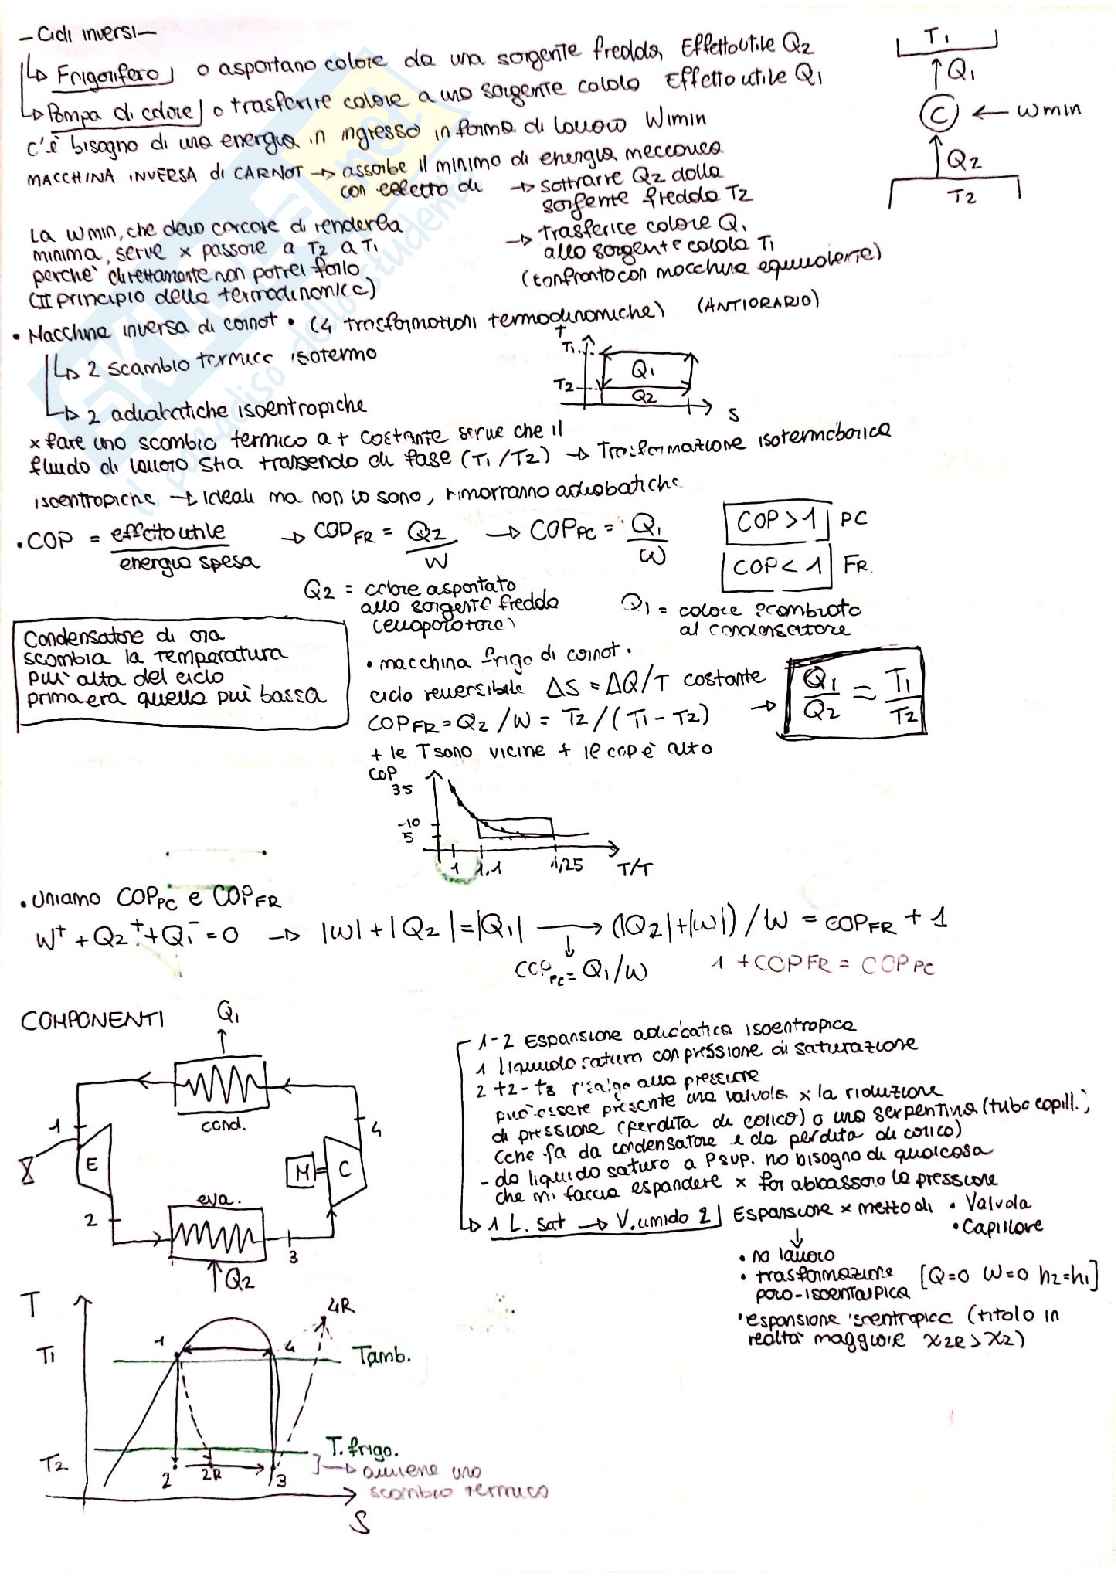 - Cicli inversi -
↳ Frigorifero o asportano calore da una sorgente fredda, Effetto utile Q2
↳ Pompa di calore o trasferire calore a una sorgente calda Effetto utile Q1
c'è bisogno di una energia in ingresso in forma di lavoro Wmin
MACCHINA INVERSA di CARNOT → assorbe il minimo di energia meccanica
con effetto di → sottrarre Q2 dalla
sorgente fredda T2
→ trasferice calore Q1
alla sorgente calda T1
(confronto con macchina equivalente)
La Wmin, che devo cercare di renderla
minima, serve x passare a T2 a T1
perchè direttamente non potrei farlo
(II principio della termodinamica)
T1
Q1
C ← W min
Q2
T2
• Macchina inversa di carnot • (4 trasformazioni termodinamiche) (ANTIORARIO)
↳ 2 scambio termico isotermo
↳ 2 adiabatiche isoentropiche
T
T1
Q1
T2
Q2
S
x fare uno scambio termico a t costante serve che il
fluido di lavoro stia transendo di fase (T1/T2) → Trasformazione isotermobarica
isoentropiche → ideali ma non lo sono, rimarranno adiabatiche
• COP = effetto utile / energia spesa → COP FR = Q2/W → COP PC = Q1/W
COP > 1 PC
COP < 1 FR.
Q2 = calore asportato
alla sorgente fredda
(evaporatore)
Q1 = calore scambiato
al condensatore
Condensatore di ora
scambia la temperatura
più alta del ciclo
prima era quella più bassa
• macchina frigo di carnot •
ciclo reversibile ΔS = ΔQ/T costante → Q1/Q2 = T1/T2
COP FR = Q2/W = T2/(T1-T2)
+ le T sono vicine + le cop è alto
COP
35
10
5
1 1,1 1,25 T/T
• Uniamo COP PC e COP FR
W⁺ + Q2⁺ + Q1⁻ = 0 → |W| + |Q2| = |Q1| → (|Q2| + |W|)/W = COP FR + 1
COP PC = Q1/W 1 + COP FR = COP PC
COMPONENTI
Q1
cond.
1
4
E
M
C
2
eva.
3
Q2
1-2 Espansione adiabatica isoentropica
1 liquido saturo con pressione di saturazione
2 t2-t3 risalgo alla pressione
può essere presente una valvola x la riduzione
di pressione (perdita di carico) o una serpentina (tubo capill.,
(che fa da condensatore e da perdita di carico)
- da liquido saturo a P sup. ho bisogno di qualcosa
che mi faccia espandere x far abbassare la pressione
↳ 1 L. sat → V. umido 2 Espansione x metodi • Valvola
• Capillare
• no lavoro
• trasformazione [Q=0 W=0 h2=h1]
poro-isoentalpica
• espansione isentropica (titolo in
realtà maggiore x2R > x2)
T
4R
1
4
T1
Tamb.
T. frigo.
T2
2 2R 3
→ avviene uno
scambio termico
S